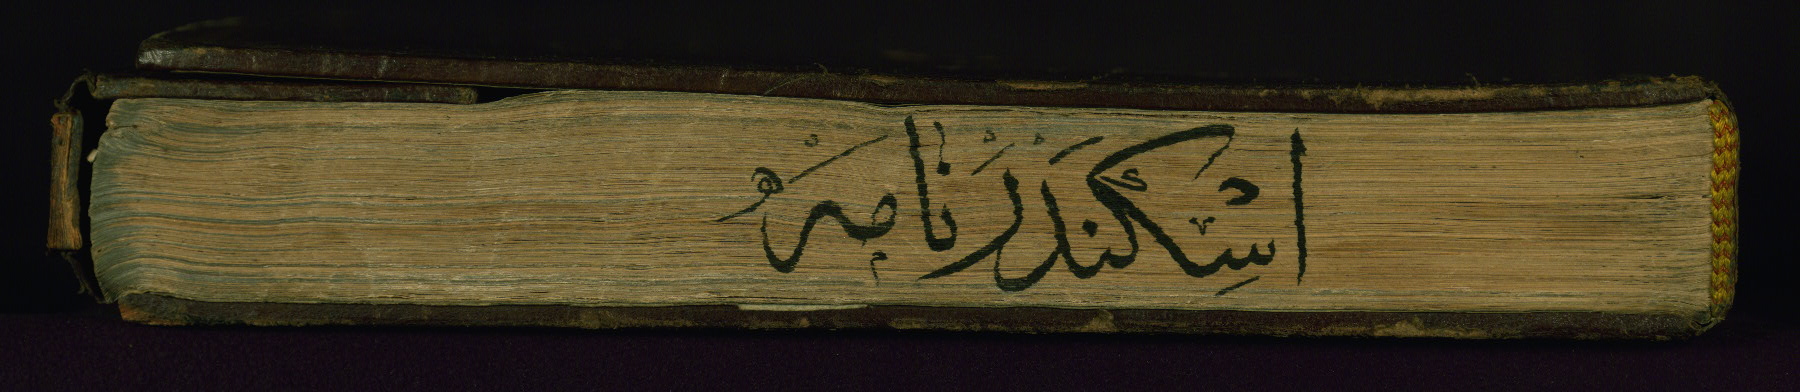 اسكندرنامه